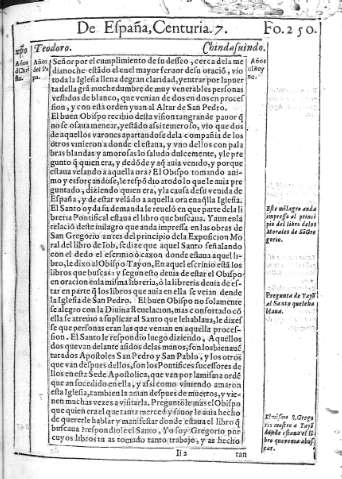 De España, Centuria. 7.
Fo. 250.
Teodoro.
Chindasuindo.
Años
Años
Señor por el cumplimiento de su desseo, cerca de la me
dia noche estādo el en el mayor feruor de su oració, vio
toda la Iglesia llena de gran claridad, y entrar por la puer
ta della grā muchedumbre de muy venerables personas
vestidos de blanco, que venian de dos en dos en proces
sion, y con este orden yuan al Altar de San Pedro.
El buen Obispo recibio desta vision tan grande pauor q̄
no se osaua menear, y estādo assi temeroso, vio que dos
de aquellos varones apartandose de la compañia de los
otros vinieron a donde el estaua, y vno dellos con pala
bras blandas y amorosas lo saludo dulcemente, y le pre
gunto q̄ quien era, y de dōde y a q̄ auia venido, y porque
estaua velando a aquella ora? El Obispo tomando ani
mo y esforçandose, le respōdio a todo lo que le auia pre
guntado, diziendo quien era, y la causa de su venida de
España, y de estar velādo a aquella ora en aq̄lla Iglesia.
El Santo oyda su demanda le reueló en que parte de la li
breria Pontifical estaua el libro que buscaua. Y aun en la
relació deste milagro que anda impressa en las obras de
San Gregorio antes del principio de la Exposicion Mo
ral del libro de Iob, se dize que aquel Santo señalando
con el dedo el escritorio o caxon donde estaua aquel li-
bro, le dixo al Obispo Tajon, En aquel escritio está los
libros que buscas: y segun esto deuia de estar el Obispo
en oracion en la misma libreria, ò la libreria deuia de es-
tar en parte q̄ los libros que auia en ella se veian dende
la Iglesia de San Pedro. El buen Obispo no solamente
se alegro con la Diuina Reuelacion, mas confortado cō
ella se atreuio a suplicar al Santo que le hablaua, le dixes
se que personas eran las que venian en aquella proces-
sion. El Santo le respondio luego diziendo, Aquellos
dos que van delante asidos de las manos, son los bienauē
turados Apostoles San Pedro y San Pablo, y los otros
que van despues dellos, son los Pontifices successores de
llos en esta Sede Apostolica, que van por la misma ordē
que an sucedido en ella, y assi como viuiendo amaron
esta Iglesia, tambien la aman despues de muertos, y vie-
nen muchas vezes a visitarla. Preguntóle mas el Obispo
que quien era el que tanta merced y fauor le auia hecho
de quererle hablar y manifestar donde estaua el libro q̄
buscaua? respondio el Santo, Yo soy Gregorio por
cuyos libros tu as tomado tanto trabajo, y as hecho
Ii 2
tan
Este milagro anda
impresso al princi
pio del libro de los
Morales de S. Gre
gorio.
Pregunta de Tajō
al Santo que le ha
blaua.